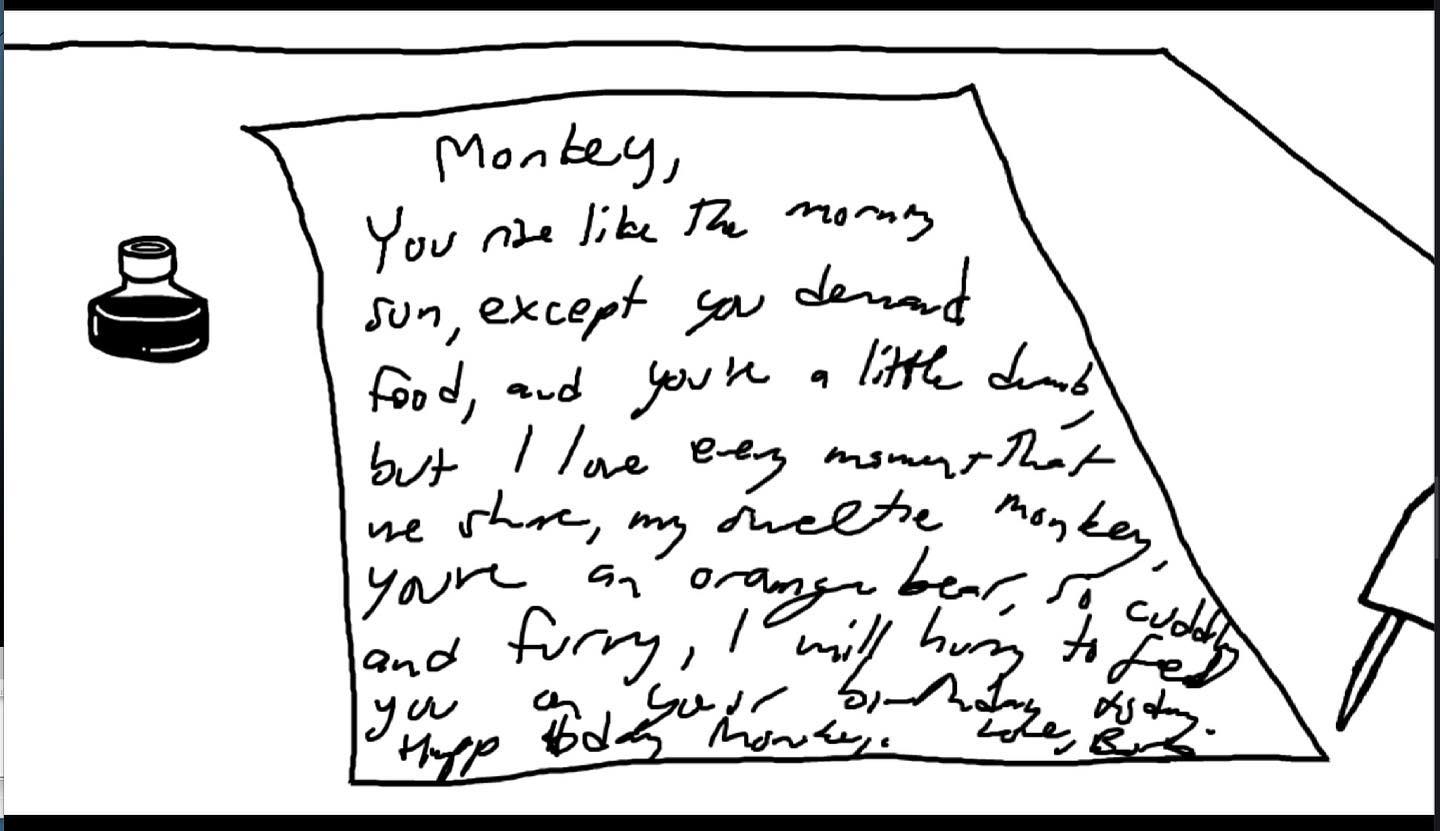 Monkey,
You rise like the morning
sun, except you demand
food, and you're a little dumb,
but I love every moment that
we share, my sweetie monkey,
you're an orange bear, so cuddly
and furry, I will hurry to feed
you on your birthday today.
Monkey. Love,